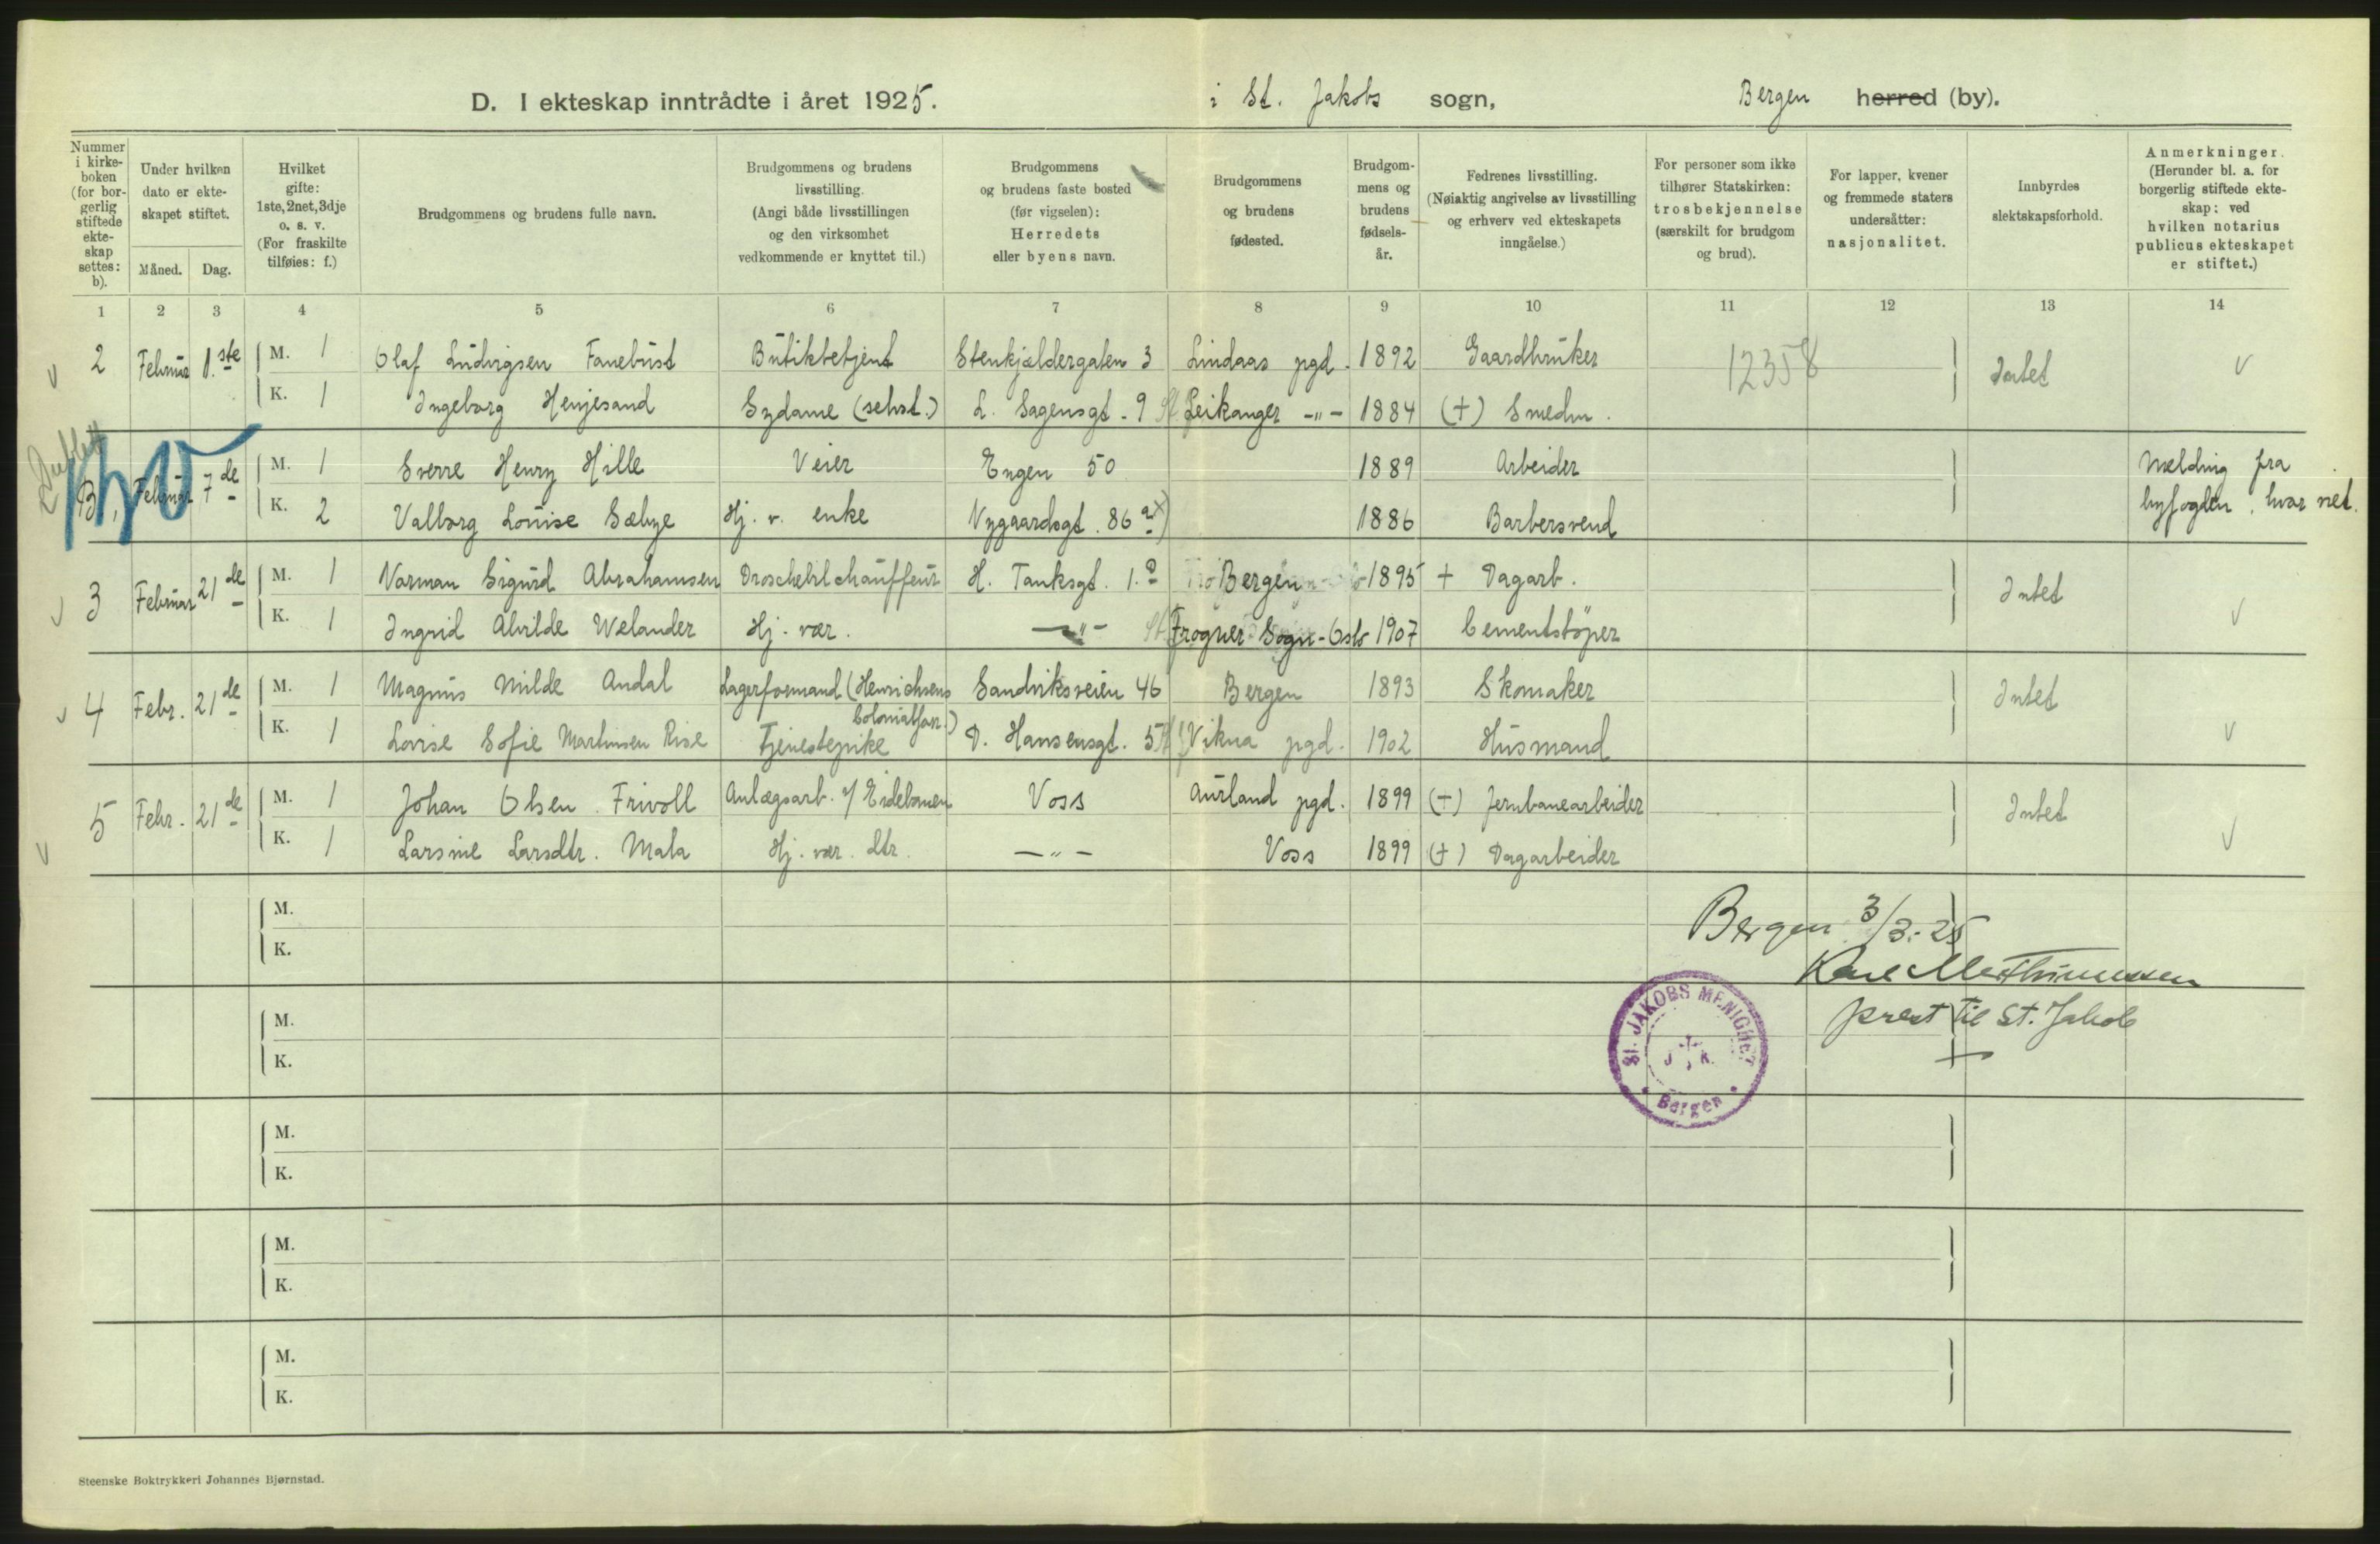 D. I ekteskap inntrådte i året 1925. i St. Jakobs sogn, Bergen herred (by).
Nummer i kirkeboken (for borgerlig stiftede ekteskap settes: b).
Under hvilken dato er ekteskapet stiftet.
Måned. Dag.
Hvilket gifte: 1ste, 2net, 3dje o. s. v. (For fraskilte tilføies: f.)
Brudgommens og brudens fulle navn.
Brudgommens og brudens livsstilling. (Angi både livsstillingen og den virksomhet vedkommende er knyttet til.)
Brudgommens og brudens faste bosted (før vigselen): Herredets eller byens navn.
Brudgommens og brudens fødested.
Brudgommens og brudens fødselsår.
Fedrenes livsstilling. (Nøiaktig angivelse av livsstilling og erhverv ved ekteskapets inngåelse.)
For personer som ikke tilhører Statskirken: trosbekjennelse (særskilt for brudgom og brud).
For lapper, kvener og fremmede staters undersåtter: nasjonalitet.
Innbyrdes slektskapsforhold.
Anmerkninger. (Herunder bl. a. for borgerlig stiftede ekteskap: ved hvilken notarius publicus ekteskapet er stiftet.)
1 2 3 4 5 6 7 8 9 10 11 12 13 14
2 Februar 1.ste M. 1 Olaf Ludvigsen Fanebust Butikbetjent Stenkjældergaten 3 Lindaas pgd. 1892 Gaardbruker 12358 Intet
K. 1 Ingeborg Henjesand Sydame (selvst.) L. Sagensgt. 9 Leikanger -"- 1884 (+) Smedm.
Dublet
B, Februar 7de M. 1 Sverre Henry Hille Veier Engen 50 1889 Arbeider Melding fra
K. 2 Valborg Louise Sæbye Hj. v. enke Nygaardsgt. 86 a 1886 Barbersvend byfogden, hvor viet.
3 Februar 21de M. 1 Norman Sigurd Abrahamsen Droschebilchauffeur H. Tanksgt. 1. a Bergen 1895 + Dagarb. Intet
K. 1 Ingrid Alvilde Welander Hj. vær. -"- Frogner Sogn - Oslo 1907 Cementstöper
4 Febr. 21de M. 1 Magnus Milde Andal Lagerformand (Henrichsens Sandviksveien 46 Bergen 1893 Skomaker Intet
Colonialforr.)
K. 1 Lovise Sofie Martinsen Rise Tjenestepike D. Hansensgt. 5 Vikna pgd. 1902 Husmand
5 Febr. 21de M. 1 Johan Olsen Frivoll Anlægsarb. v/ Eidebanen Voss Aurland pgd. 1899 (+) Jernbanearbeider Intet
K. 1 Larsine Larsdtr. Mala Hj. vær. dtr. -"- Voss 1899 (+) Dagarbeider
M.
K.
Bergen 3/3.-25
prest til St. Jakob
M.
K.
ST. JAKOBS MENIGHET
J. K.
Bergen
M.
K.
M.
K.
M.
K.
Steenske Boktrykkeri Johannes Bjørnstad.